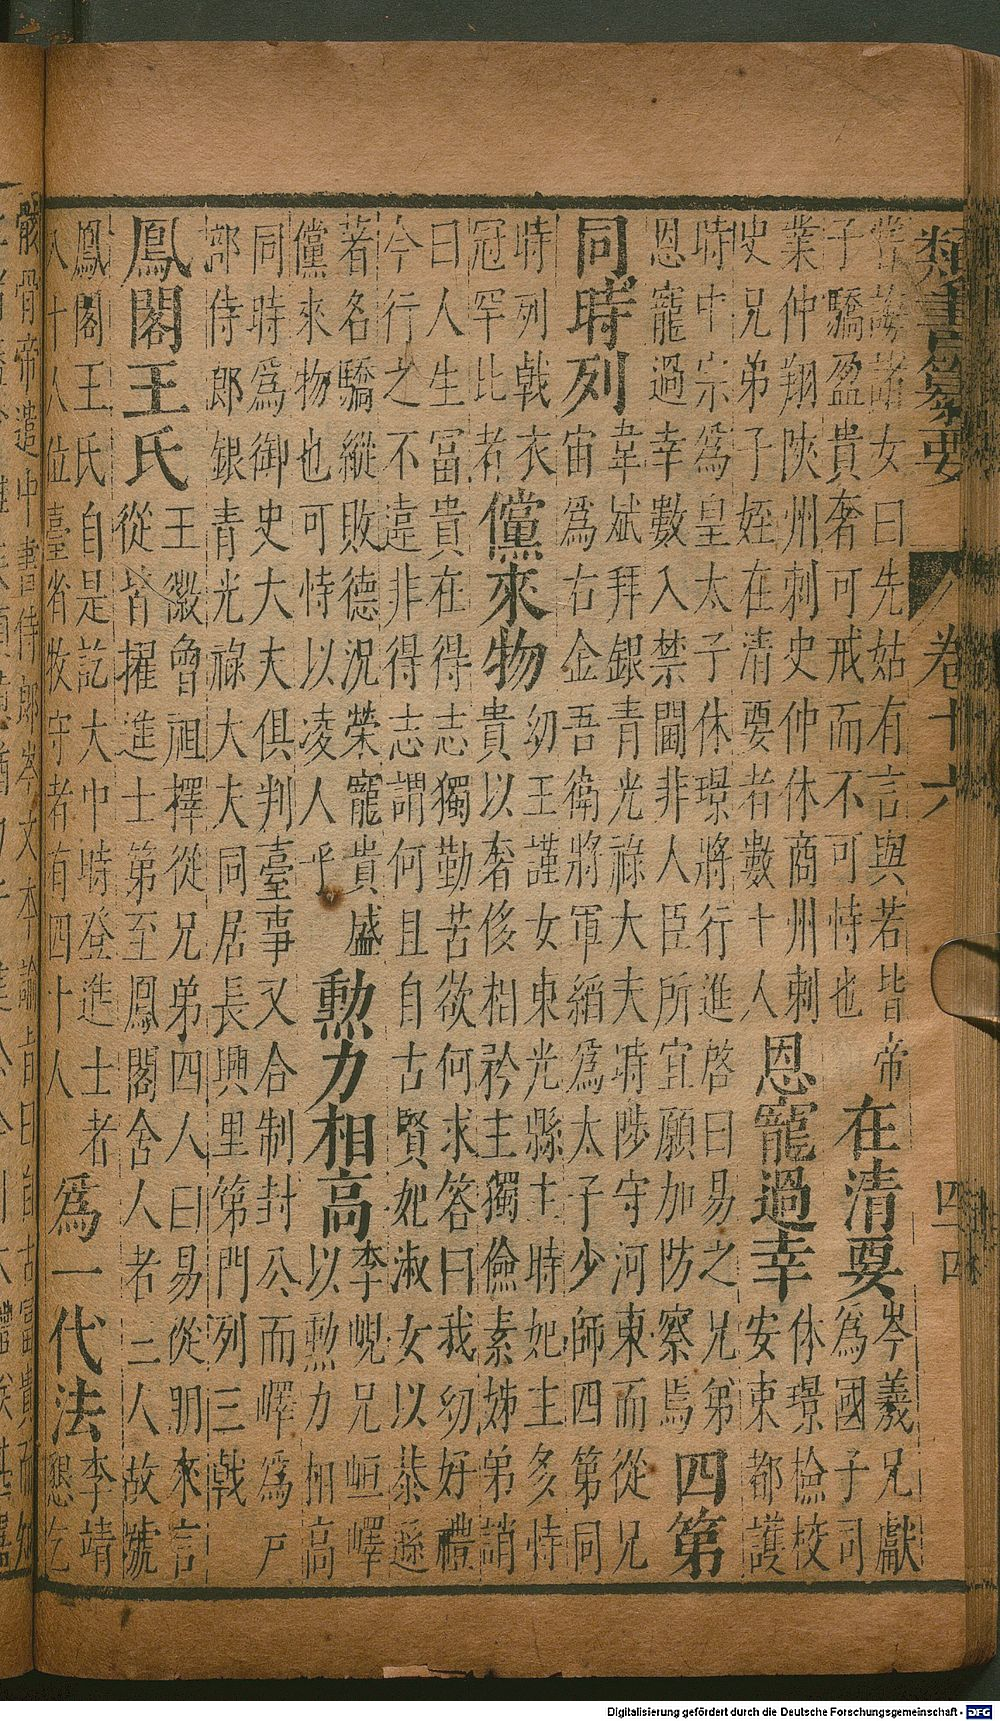 類書纂要 卷十六 四四
嘗誨諸女曰先姑有言與若皆帝
子驕盈貴奢可戒而不可恃也
在清要
岑羲兄獻
為國子司
業仲翔陝州刺史仲休商州刺
史兄弟子姪在清要者數十人
恩寵過幸
休璟檢校
安東都護
時中宗為皇太子休璟將行進啓曰易之兄弟
恩寵過幸數入禁闥非人臣所宜願加防察焉
四第
同時列
韋斌拜銀青光祿大夫時陟守河東而從兄
宙為右金吾衛將軍縚為太子少師四第同
時列戟衣
冠罕比者
儻來物
幼王謹女東光縣主時妃主多恃
貴以奢侈相矜主獨儉素姊弟誚
曰人生富貴在得志獨勤苦欲何求答曰我幼好禮
今行之不違非得志謂何且自古賢妃淑女以恭遜
著名驕縱敗德況榮寵貴盛
儻來物也可恃以凌人乎
勲力相高
李峴兄峘嶧
以勲力相高
同時爲御史大夫俱判臺事又合制封公而嶧爲戶
部侍郎銀青光祿大夫同居長興里第門列三戟
鳳閣王氏
王徽曾祖擇從兄弟四人曰易從朋來言
從皆擢進士第至鳳閣舍人者三人故號
鳳閣王氏自是訖大中時登進士者
八十人位臺省牧守者有四十人
爲一代法
李靖
懇乞
骸骨帝遣中書侍郎岑文本諭旨曰自古富貴而知
Digitalisierung gefördert durch die Deutsche Forschungsgemeinschaft - DFG